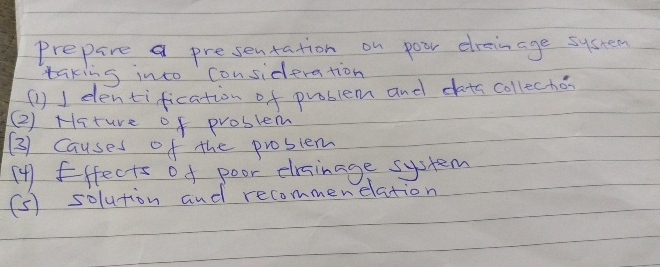 Prepare a presentation on poor drainage system
taking into consideration
(1) Identification of problem and data collection
(2) Nature of problem
(3) Causes of the problem
(4) Effects of poor drainage system
(5) solution and recommendation